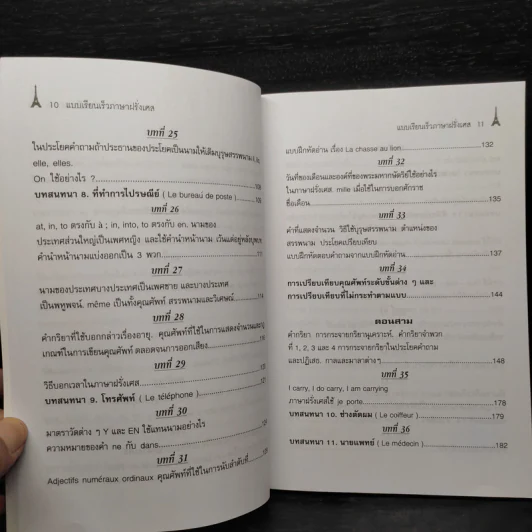 10 แบบเรียนเร็วภาษาฝรั่งเศส
บทที่ 25
ในประโยคคำถามถ้าประธานของประโยคเป็นนามให้เติมบุรุษสรรพนาม
elle, elles.
On ใช้อย่างไร ?
บทสนทนา 8. ที่ทำการไปรษณีย์ ( Le bureau de poste )
บทที่ 26
at, in, to ตรงกับ à ; in, into, to ตรงกับ en, นามของ
ประเทศส่วนใหญ่เป็นเพศหญิง และใช้คำนำหน้านาม เว้นแต่อยู่หลังบุพบท
คำนำหน้านามแบ่งออกเป็น 3 พวก
บทที่ 27
นามของประเทศบางประเทศเป็นเพศชาย และบางประเทศ
เป็นพหูพจน์. même เป็นทั้งคุณศัพท์ สรรพนามและวิเศษณ์
บทที่ 28
คำกริยาที่ใช้บอกกล่าวเรื่องอายุ. คุณศัพท์ที่ใช้ในการแสดงจำนวน
เกณฑ์ในการเขียนคุณศัพท์ ตลอดจนการออกเสียง
บทที่ 29
วิธีบอกเวลาในภาษาฝรั่งเศส
บทสนทนา 9. โทรศัพท์ ( Le téléphone )
บทที่ 30
มาตราวัดต่าง ๆ Y และ EN ใช้แทนนามอย่างไร
ความหมายของคำ ne กับ dans
บทที่ 31
Adjectifs numéraux ordinaux คุณศัพท์ที่ใช้ในการนับลำดับที่
แบบเรียนเร็วภาษาฝรั่งเศส 11
แบบฝึกหัดอ่าน เรื่อง La chasse au lion 132
บทที่ 32
วันที่ของเดือนและองค์ที่ของพระมหากษัตริย์ใช้อย่างไร
ในภาษาฝรั่งเศส. mille เมื่อใช้ในการบอกศักราช
ชื่อเดือน 135
บทที่ 33
คำที่แสดงจำนวน วิธีใช้บุรุษสรรพนาม ตำแหน่งของ
สรรพนาม ประโยคเปรียบเทียบ
แบบฝึกหัดตอบคำถามจากแบบฝึกหัดอ่าน 137
บทที่ 34
การเปรียบเทียบคุณศัพท์ระดับขั้นต่าง ๆ และ
การเปรียบเทียบที่ไม่กระทำตามแบบ 144
ตอนสาม
คำกริยา การกระจายกริยานุเคราะห์. คำกริยาจำพวก
ที่ 1, 2, 3 และ 4 การกระจายกริยาในประโยคคำถาม
และปฏิเสธ. กาลและมาลาต่างๆ 148
บทที่ 35
I carry, I do carry, I am carrying
ภาษาฝรั่งเศสใช้ je porte 178
บทสนทนา 10. ช่างตัดผม ( Le coiffeur ) 179
บทที่ 36
บทสนทนา 11. นายแพทย์ ( Le médecin ) 182